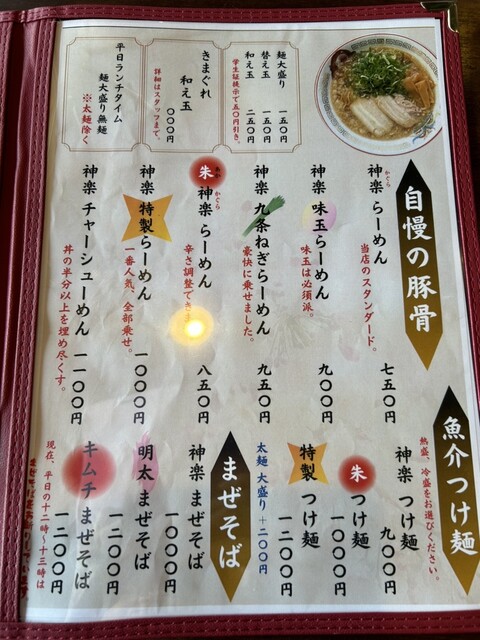 自慢の豚骨
神楽 らーめん
かぐら
当店のスタンダード。
七五〇円
神楽 味玉らーめん
味玉は必須派。
九〇〇円
神楽 九条ねぎらーめん
豪快に乗せました。
九五〇円
朱 神楽 らーめん
あか かぐら
辛さ調整でき
八五〇円
神楽 特製らーめん
一番人気、全部乗せ。
一〇〇〇円
神楽 チャーシューめん
丼の半分以上を埋め尽くす。
一一〇〇円
麺大盛り 一五〇円
替え玉 一五〇円
和え玉 二五〇円
学生証掲示で五〇円引き。
きまぐれ
和え玉
〇〇〇円
詳細はスタッフまで。
平日ランチタイム
麺大盛り無麺
※太麺除く
魚介つけ麺
熱盛、冷盛をお選びください。
神楽 つけ麺
九〇〇円
朱 つけ麺
一〇〇〇円
特製 つけ麺
一二〇〇円
太麺 大盛り +二〇〇円
まぜそば
神楽 まぜそば
一〇〇〇円
明太 まぜそば
一二〇〇円
キムチ まぜそば
一二〇〇円
現在、平日の十二時～十三時は